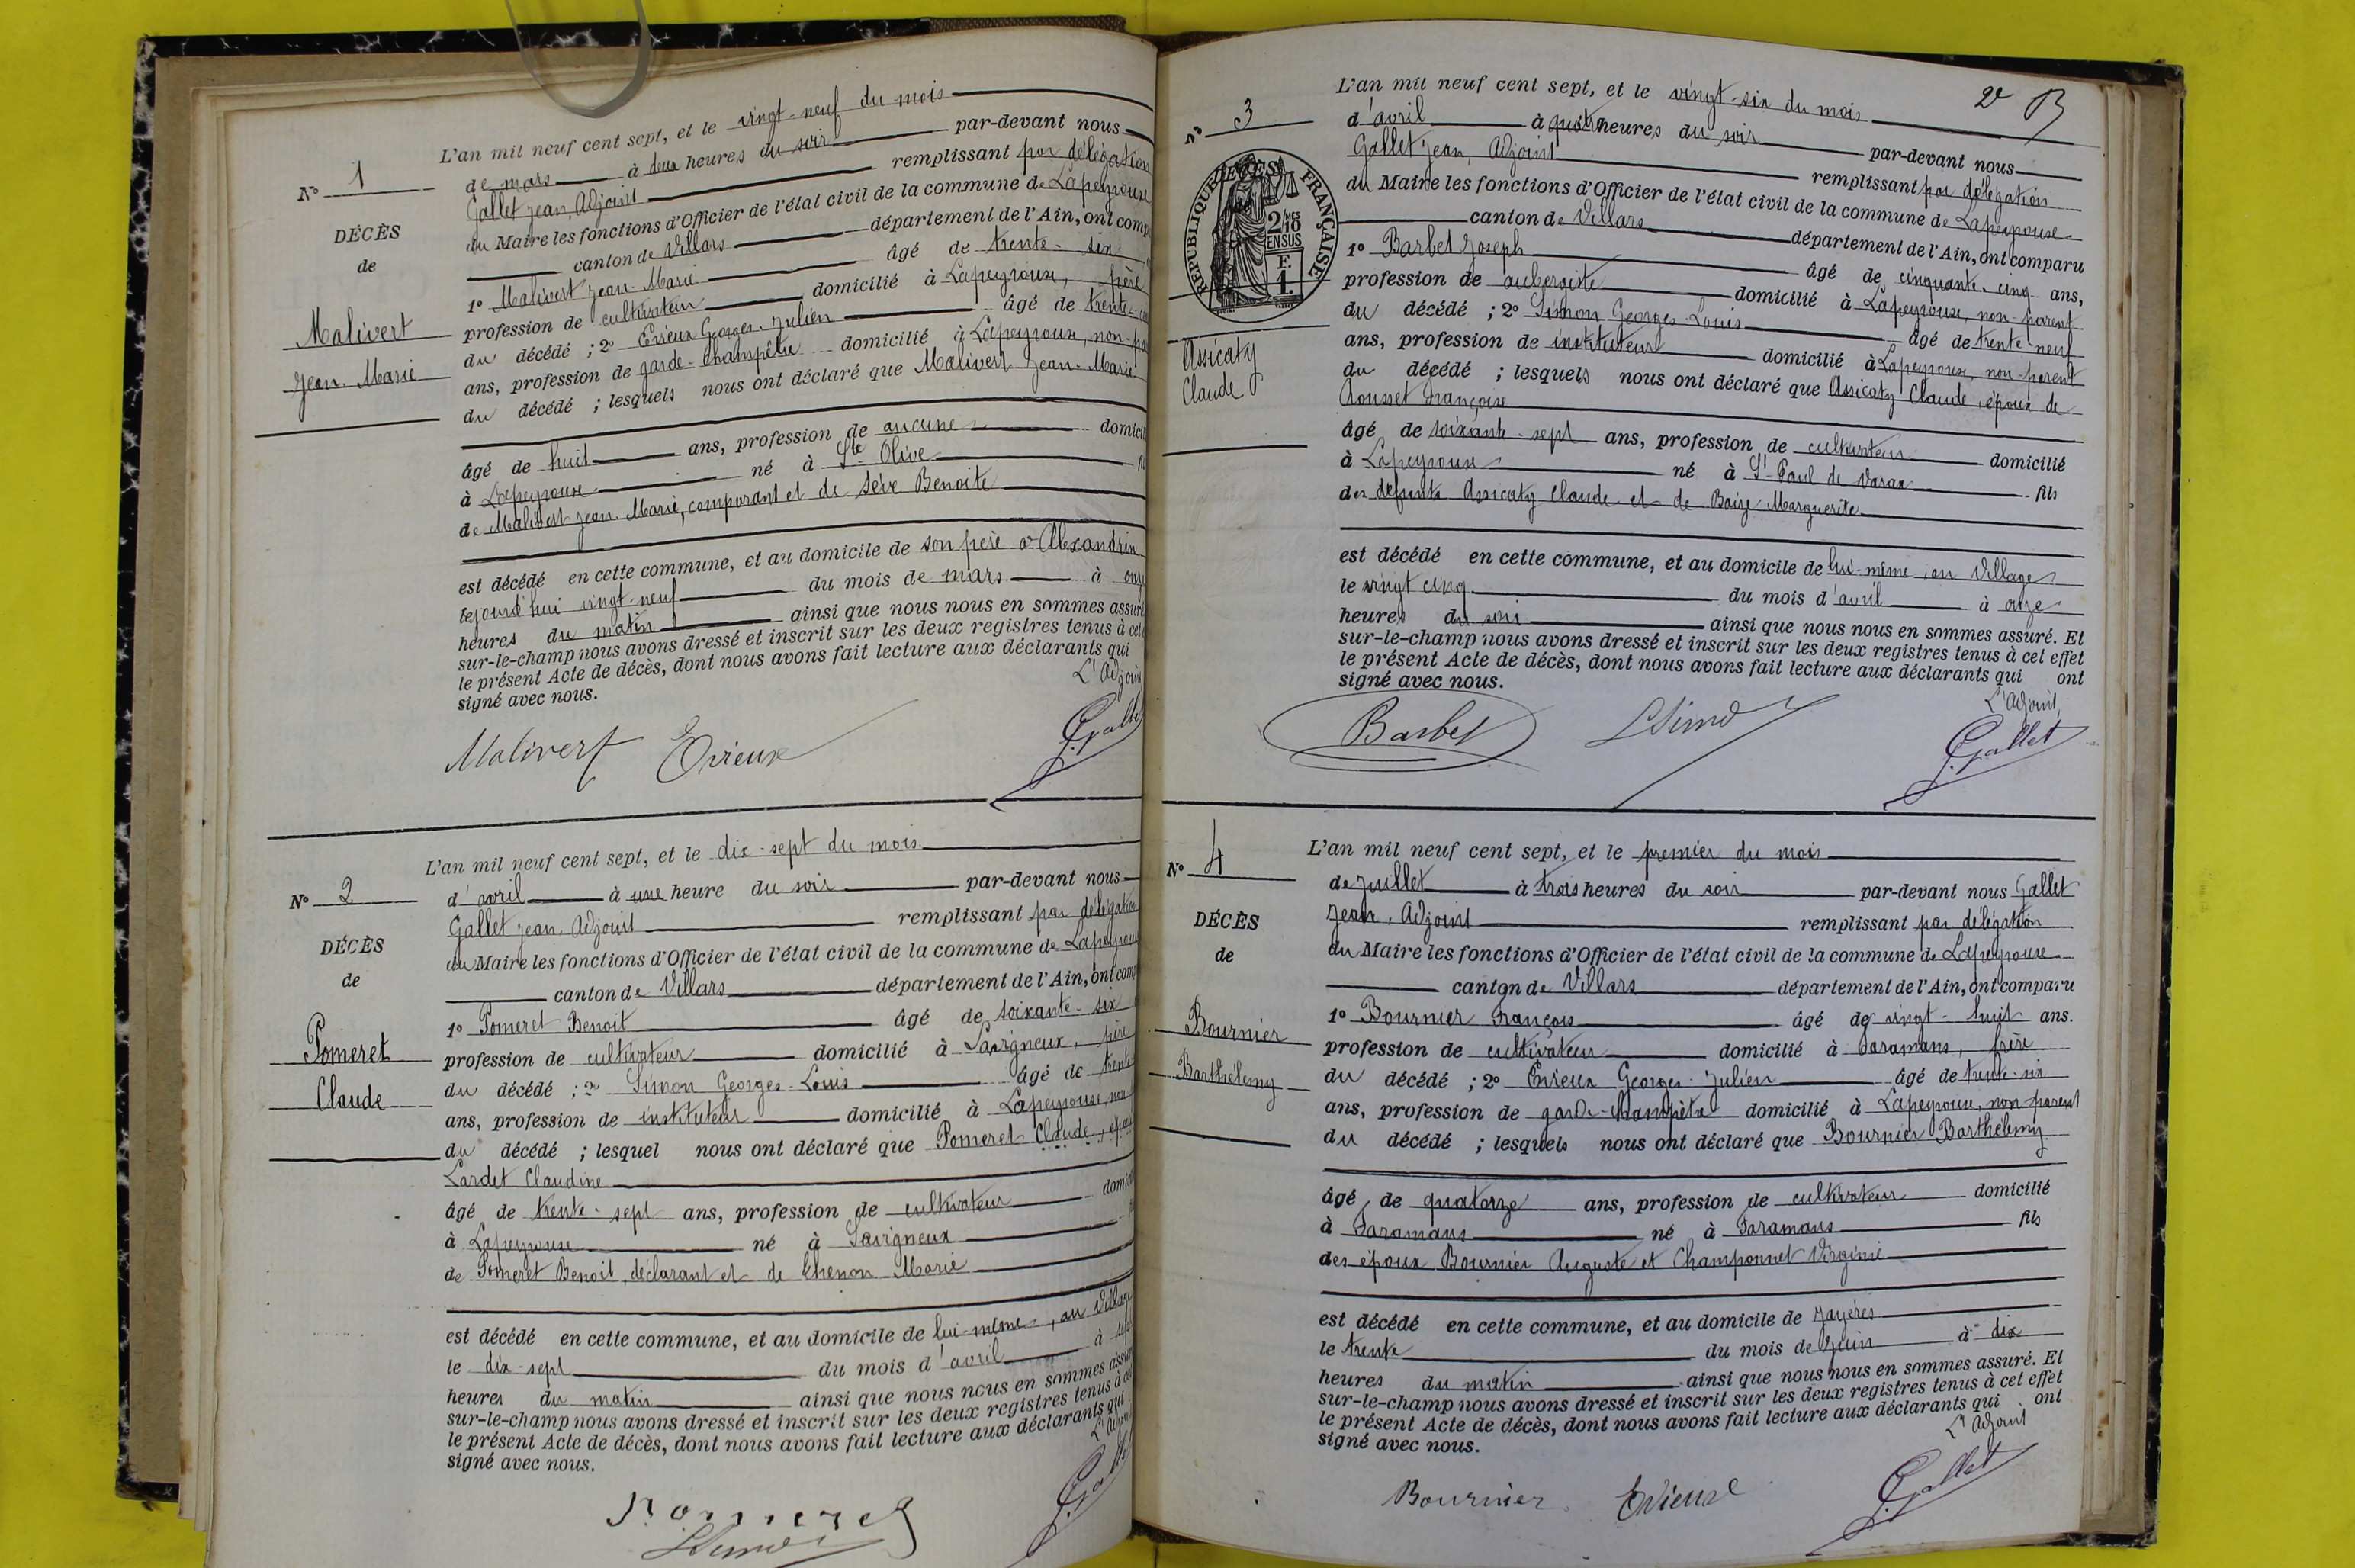 L'an mil neuf cent sept, et le vingt-neuf du mois
N° 1
de mars à deux heures du soir par-devant nous
Gallet Jean, Adjoint remplissant par délégation
du Maire les fonctions d'Officier de l'état civil de la commune de Lapeyrouse
DÉCÈS
de
Malivert
Jean-Marie
canton de Villars département de l'Ain, ont comp
1° Malivert Jean-Marie âgé de trente-six
profession de cultivateur domicilié à Lapeyrouse, père
du décédé ; 2° Evieux Georges-Julien âgé de trente-
ans, profession de garde-champêtre domicilié à Lapeyrouse, non-pa
du décédé ; lesquels nous ont déclaré que Malivert Jean-Marie
âgé de huit ans, profession de aucune domicil
à Lapeyrouse né à Ste Olive
de Malivert Jean-Marie, comparant et de Sève Benoîte
est décédé en cette commune, et au domicile de son père à Alexandrin
le jourd'hui vingt-neuf du mois de mars à onze
heures du matin ainsi que nous nous en sommes assuré
sur-le-champ nous avons dressé et inscrit sur les deux registres tenus à cet
le présent Acte de décès, dont nous avons fait lecture aux déclarants qui
signé avec nous.
L'Adjoint
Malivert Evieux J. Gallet
L'an mil neuf cent sept, et le dix-sept du mois
N° 2
d'avril à une heure du soir par-devant nous
Gallet Jean, Adjoint remplissant par délégation
du Maire les fonctions d'Officier de l'état civil de la commune de Lapeyrouse
DÉCÈS
de
Pomeret
Claude
canton de Villars département de l'Ain, ont comp
1° Pomeret Benoit âgé de soixante-six
profession de cultivateur domicilié à Savigneux, père
du décédé ; 2° Simon Georges-Louis âgé de trente
ans, profession de instituteur domicilié à Lapeyrouse, non
du décédé ; lesquel nous ont déclaré que Pomeret Claude, époux
Lardet Claudine
âgé de trente-sept ans, profession de cultivateur domicil
à Lapeyrouse né à Savigneux
de Pomeret Benoit, déclarant et de Chenon Marie
est décédé en cette commune, et au domicile de lui-même, au Village
le dix-sept du mois d'avril à sept
heures du matin ainsi que nous nous en sommes assuré
sur-le-champ nous avons dressé et inscrit sur les deux registres tenus à cet
le présent Acte de décès, dont nous avons fait lecture aux déclarants qui
signé avec nous.
L'Adjoint
Pomeret J. Gallet
LSimon
2e
L'an mil neuf cent sept, et le vingt-six du mois
N° 3
d'avril à quatre heures du soir par-devant nous
Gallet Jean, Adjoint remplissant par délégation
du Maire les fonctions d'Officier de l'état civil de la commune de Lapeyrouse
DÉCÈS
RÉPUBLIQUE FRANÇAISE
2/10 MES
EN SUS
F.
1.
Assicaty
Claude
canton de Villars département de l'Ain, ont comparu
1° Barbet Joseph âgé de cinquante-cinq ans,
profession de aubergiste domicilié à Lapeyrouse, non-parent
du décédé ; 2° Simon Georges-Louis âgé de trente-neuf
ans, profession de instituteur domicilié à Lapeyrouse, non-parent
du décédé ; lesquels nous ont déclaré que Assicaty Claude, époux de
Rousset Françoise
âgé de soixante-sept ans, profession de cultivateur domicilié
à Lapeyrouse né à St-Paul de Varax fils
des défunts Assicaty Claude et de Baize Marguerite
est décédé en cette commune, et au domicile de lui-même, au Village
le vingt cinq du mois d'avril à onze
heures du soir ainsi que nous nous en sommes assuré. Et
sur-le-champ nous avons dressé et inscrit sur les deux registres tenus à cet effet
le présent Acte de décès, dont nous avons fait lecture aux déclarants qui ont
signé avec nous.
L'Adjoint,
Barbet LSimon J. Gallet
L'an mil neuf cent sept, et le premier du mois
N° 4
de juillet à trois heures du soir par-devant nous Gallet
Jean, Adjoint remplissant par délégation
du Maire les fonctions d'Officier de l'état civil de la commune de Lapeyrouse
DÉCÈS
de
Bournier
Barthélemy
canton de Villars département de l'Ain, ont comparu
1° Bournier François âgé de vingt-huit ans.
profession de cultivateur domicilié à Faramans, frère
du décédé ; 2° Evieux Georges-Julien âgé de trente-six
ans, profession de garde-champêtre domicilié à Lapeyrouse, non parent
du décédé ; lesquels nous ont déclaré que Bournier Barthélemy
âgé de quatorze ans, profession de cultivateur domicilié
à Faramans né à Faramans fils
des époux Bournier Auguste et Champonnet Virginie
est décédé en cette commune, et au domicile de Jayères
le trente du mois de Juin à dix
heures du matin ainsi que nous nous en sommes assuré. Et
sur-le-champ nous avons dressé et inscrit sur les deux registres tenus à cet effet
le présent Acte de décès, dont nous avons fait lecture aux déclarants qui ont
signé avec nous.
L'Adjoint
Bournier Evieux J. Gallet